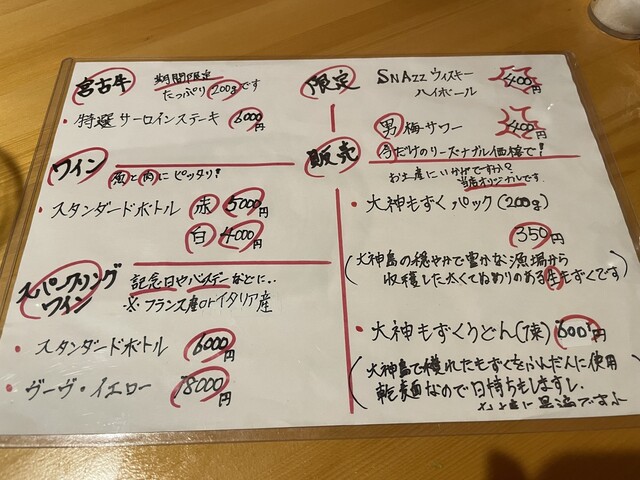 宮古牛
期間限定
たっぷり200gです
・特選サーロインステーキ 6000円
ワイン
魚と肉にピッタリ!
・スタンダードボトル 赤 5000円
白 4000円
スパークリングワイン
記念日やバースデーなどに..
※フランス産orイタリア産
・スタンダードボトル 6000円
・ヴーヴ・イエロー 18000円
限定
SNAZZ ウィスキー
ハイボール 400円
男梅サワー 400円
今だけのリーズナブル価格で!
販売
お土産にいかがですか?
当店オリジナルです.
・大神もずくパック(200g)
350円
(大神島の穏やかで豊かな漁場から
収穫した太くてぬめりのある生もずくです)
・大神もずくうどん(1束) 600円
(大神島で獲れたもずくをふんだんに使用
乾麺なので日持ちもしますし、